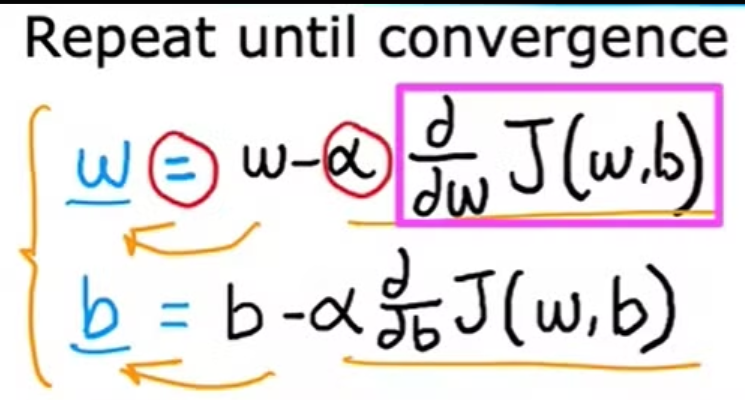 Repeat until convergence
w = w - α d/dw J(w,b)
b = b - α d/db J(w,b)